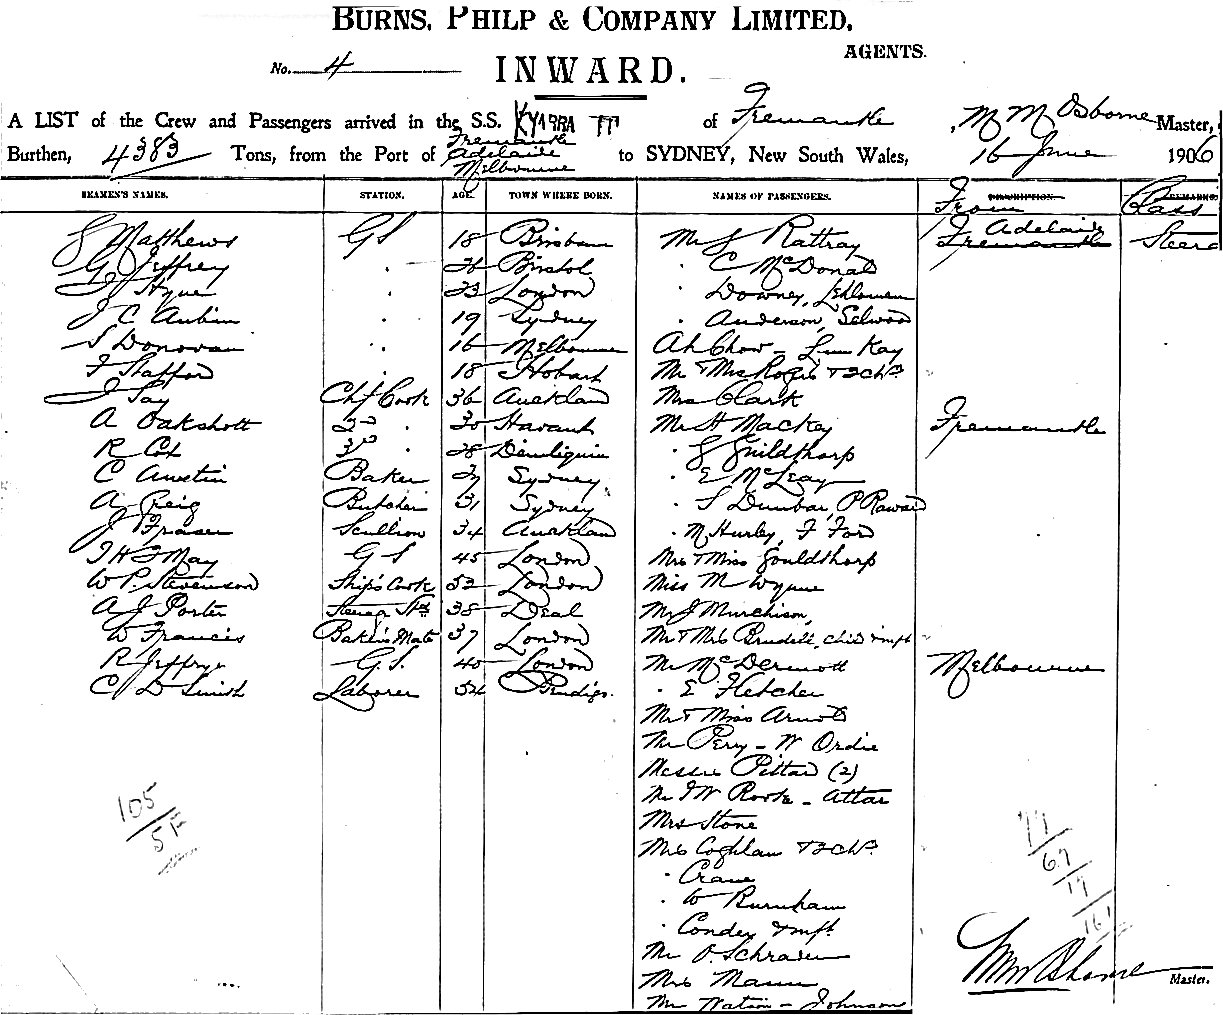 BURNS, PHILP & COMPANY LIMITED,
AGENTS.
No. 4
INWARD.
A LIST of the Crew and Passengers arrived in the S.S. KYARRA of Fremantle, M M Osborne Master,
Burthen, 4383 Tons, from the Port of Fremantle Adelaide Melbourne to SYDNEY, New South Wales, 16 June 1906
SEAMEN'S NAMES. STATION. AGE. TOWN WHERE BORN. NAMES OF PASSENGERS. From Class
Matthews G S 18 Brisbane Mr J Rattray Adelaide Fremantle Steerd
G Jeffrey 26 Bristol C McDonald
J Hyne 23 London Downey,
J C Aubin 19 Sydney Anderson, Selwood
S Donovan 16 Melbourne Ah Chow
F Stafford 18 Hobart Mr & Mrs
J Tay Chf Cook 36 Aucklan Mrs Clark
A Oakshott 2nd 30 Havant Mr H Mackey Fremantle
R Cox 3rd 28 Deniliquin Guildthorp
C Austin Baker 27 Sydney E McLeay
A Greig Butcher 31 Sydney S Dunbar, P Raward
J Fraser Scullion 34 Aucklan M Hurley, F Ford
J H F May G S 45 London Mrs & Miss Gouldthorp
W P. Stevenson Ship's Cook 52 London Miss M Wynne
A J Porter 38 Deal Mr J Murchison,
W Francis Baker's Mate 37 London Mr & Mrs Brudell, child & inft
R Jeffrye G.S. 40 London Mr McDermott Melbourne
C D Smith Laborer 52 Bendigo. E Fletcher
Mr & Miss Arnold
Mr Pery - W Ordie
Messrs Pittard (2)
Mr J W Rooke - Attar
Mrs Stone
Mrs Coghlan & 2 Chn
Crane
W Burnham
Condex & inft
Mr O. Schrader
Mrs Mann
Mr Watson - Johnson
105
51
77
67
17
161
Master.